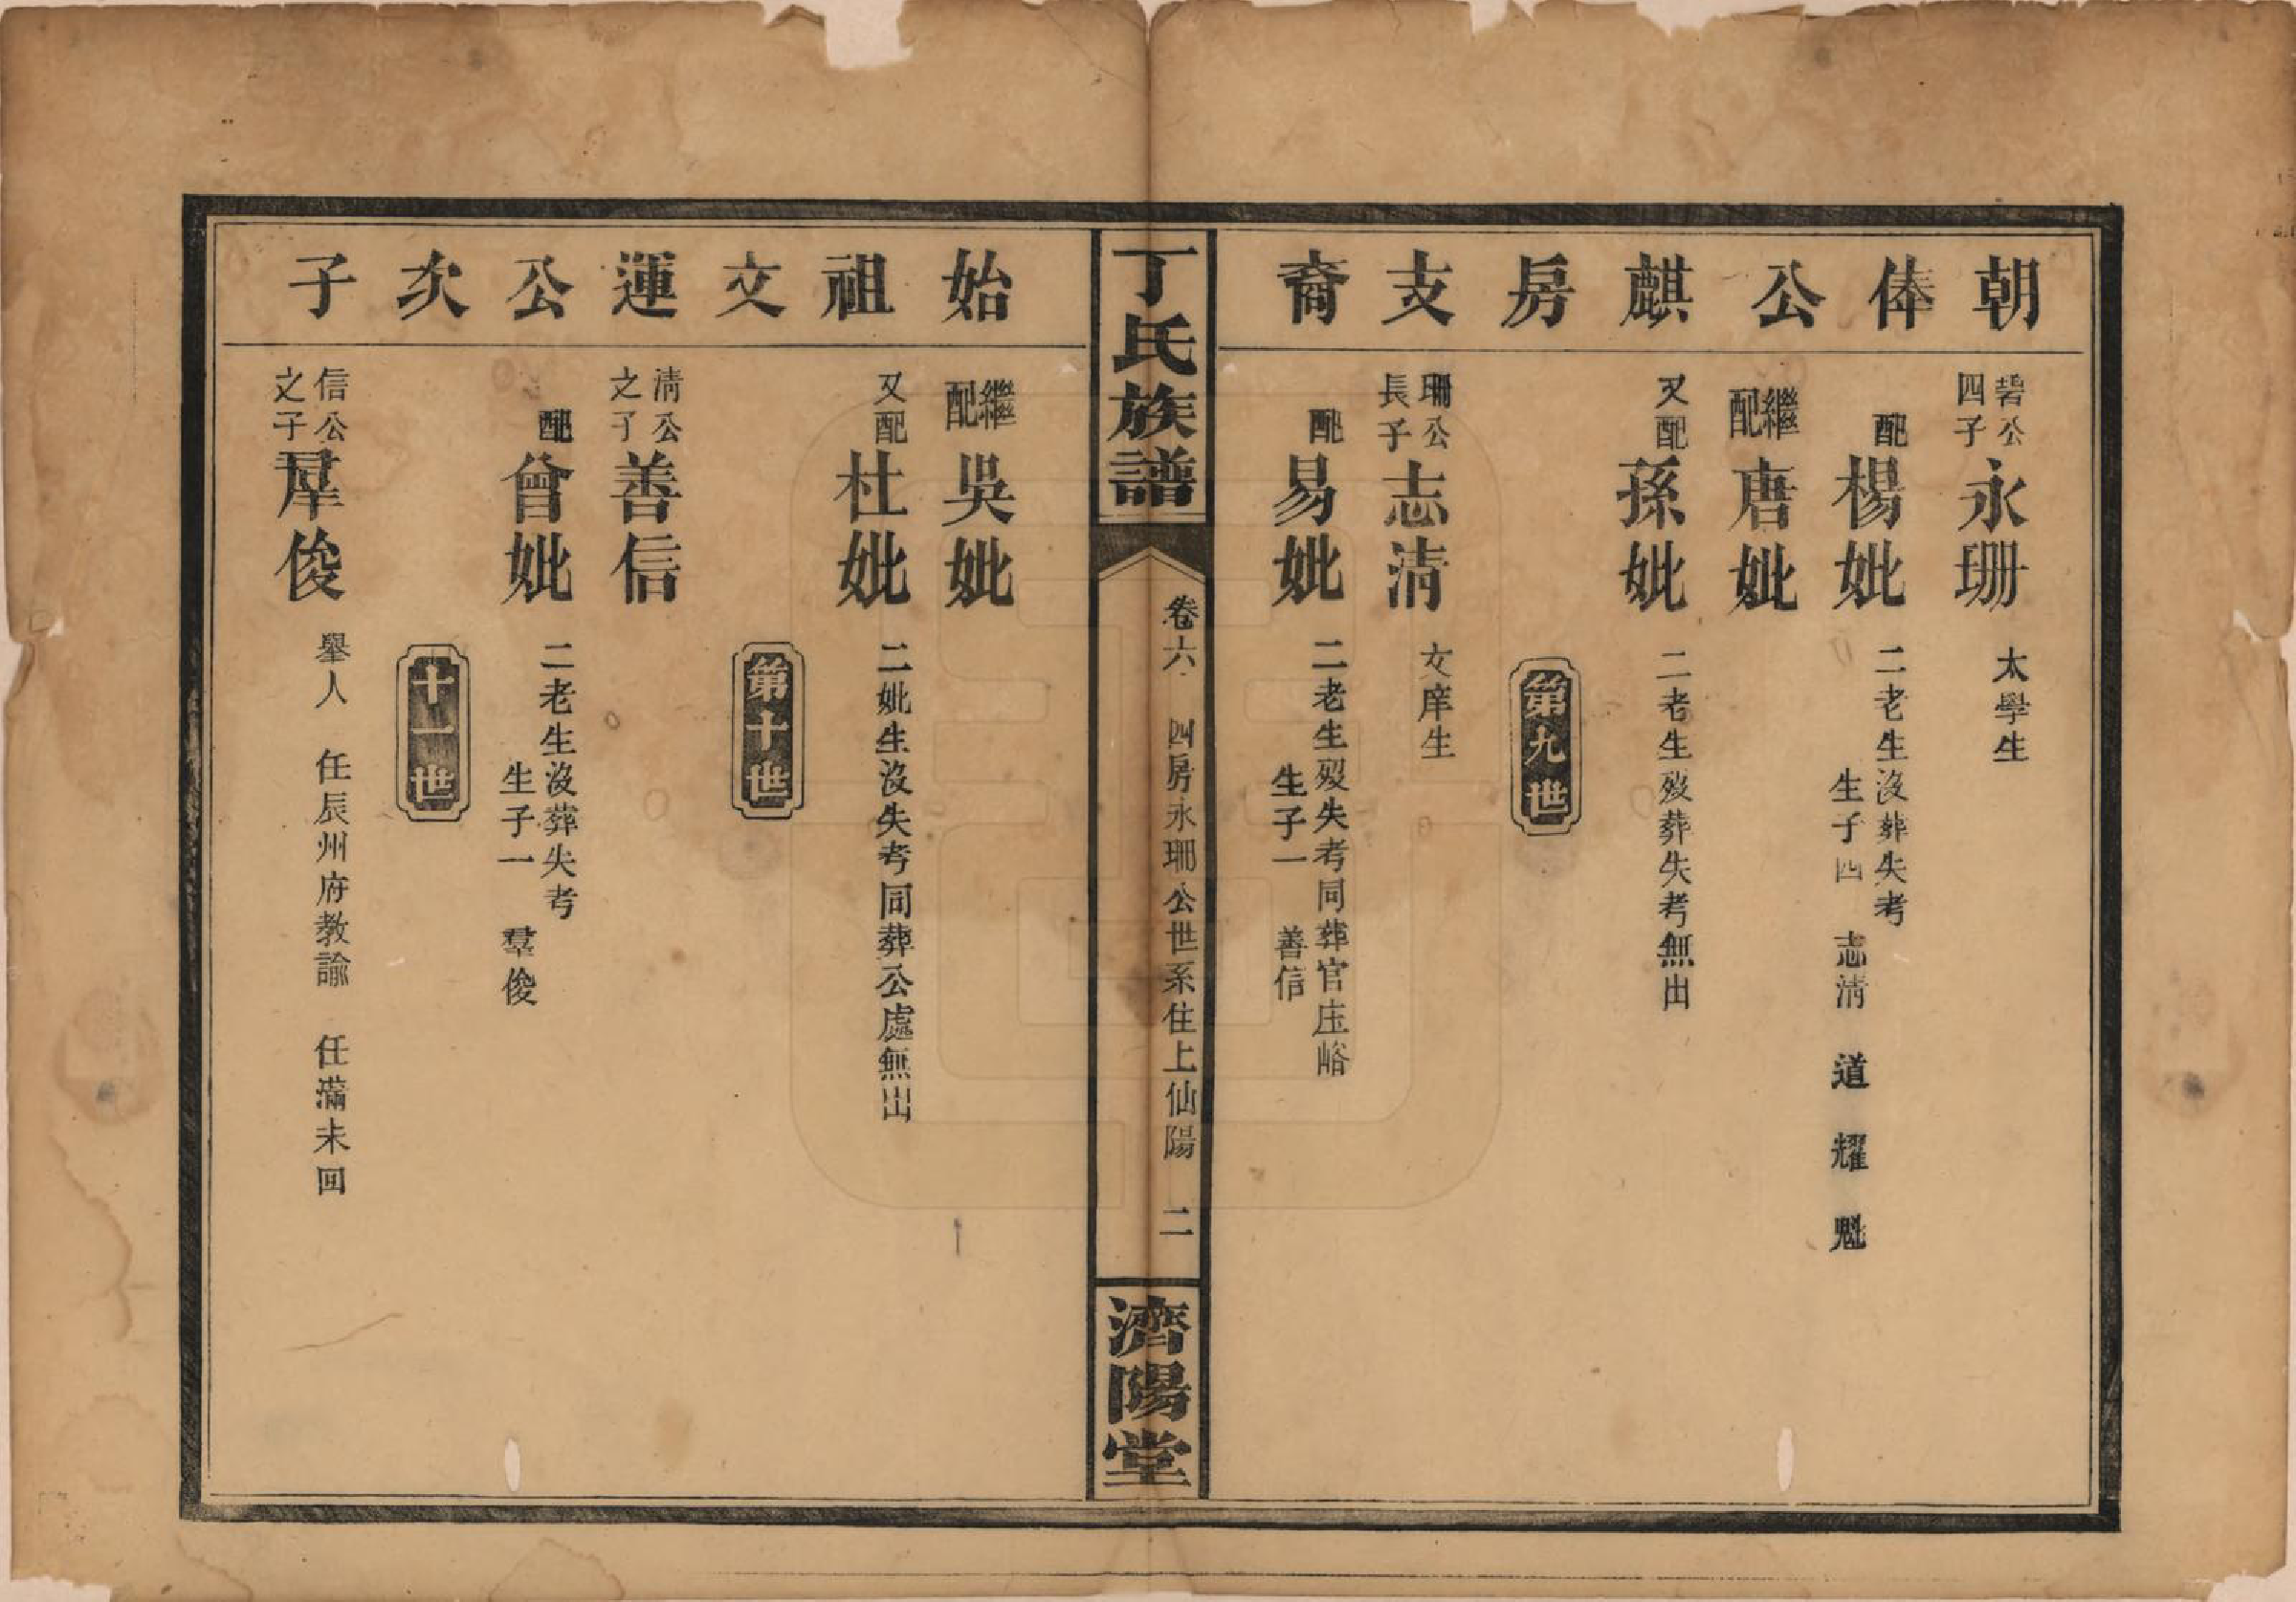 朝俸公麒房支裔
碧公
四子
永珊
太學生
配
楊妣
二老生沒葬失考
生子四 志清 道 耀 魁
繼配
唐妣
又配
孫妣
二老生歿葬失考無出
第九世
珊公
長子
志清
文庠生
配
易妣
二老生歿失考同葬官庄峪
生子一 善信
丁氏族譜
卷六 四房永珊公世系住上仙陽 二
濟陽堂
始祖文運公次子
繼配
吳妣
又配
杜妣
二妣生沒失考同葬公處無出
第十世
清公
之子
善信
配
曾妣
二老生沒葬失考
生子一 羣俊
十一世
信公
之子
羣俊
舉人 任辰州府教諭 任滿未回